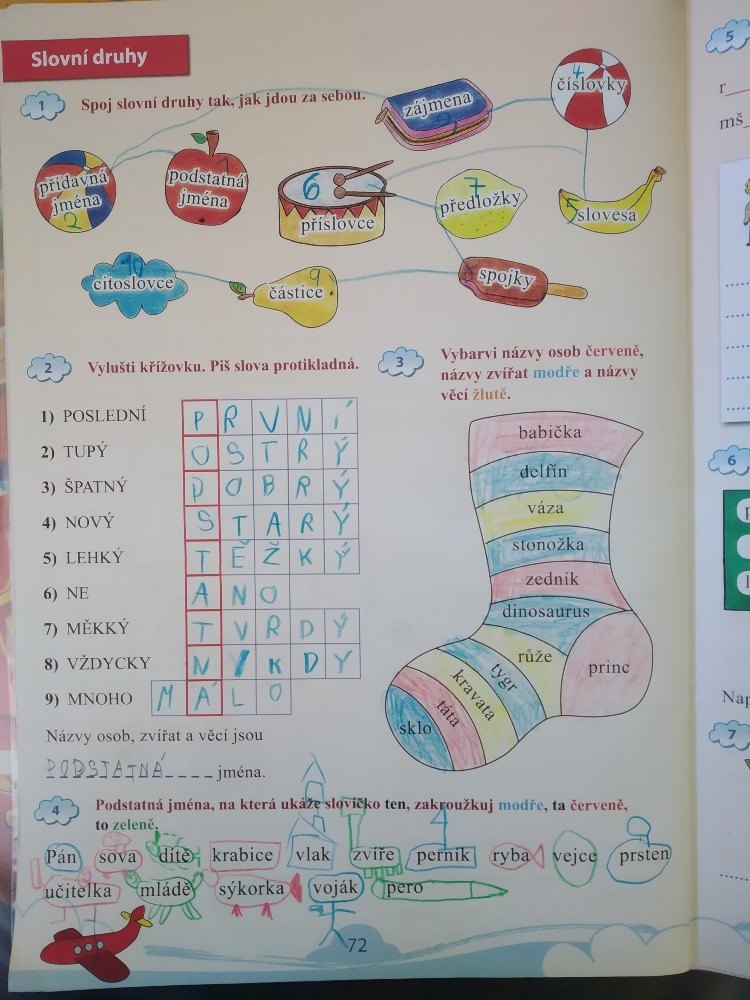 Slovní druhy
1 Spoj slovní druhy tak, jak jdou za sebou.
zájmena
číslovky 4
přídavná jména 2
podstatná jména 1
6 příslovce
7 předložky
5 slovesa
10 citoslovce
částice 9
spojky
2 Vylušti křížovku. Piš slova protikladná.
1) POSLEDNÍ PRVNÍ
2) TUPÝ OSTRÝ
3) ŠPATNÝ DOBRÝ
4) NOVÝ STARÝ
5) LEHKÝ TĚŽKÝ
6) NE ANO
7) MĚKKÝ TVRDÝ
8) VŽDYCKY NIKDY
9) MNOHO MÁLO
Názvy osob, zvířat a věcí jsou
PODSTATNÁ jména.
3 Vybarvi názvy osob červeně,
názvy zvířat modře a názvy
věcí žlutě.
babička
delfín
váza
stonožka
zedník
dinosaurus
růže
princ
tygr
kravata
táta
sklo
4 Podstatná jména, na která ukáže slovíčko ten, zakroužkuj modře, ta červeně,
to zeleně.
Pán sova dítě krabice vlak zvíře perník ryba vejce prsten
učitelka mládě sýkorka voják pero
72
5
r
mš
6
Nap
7